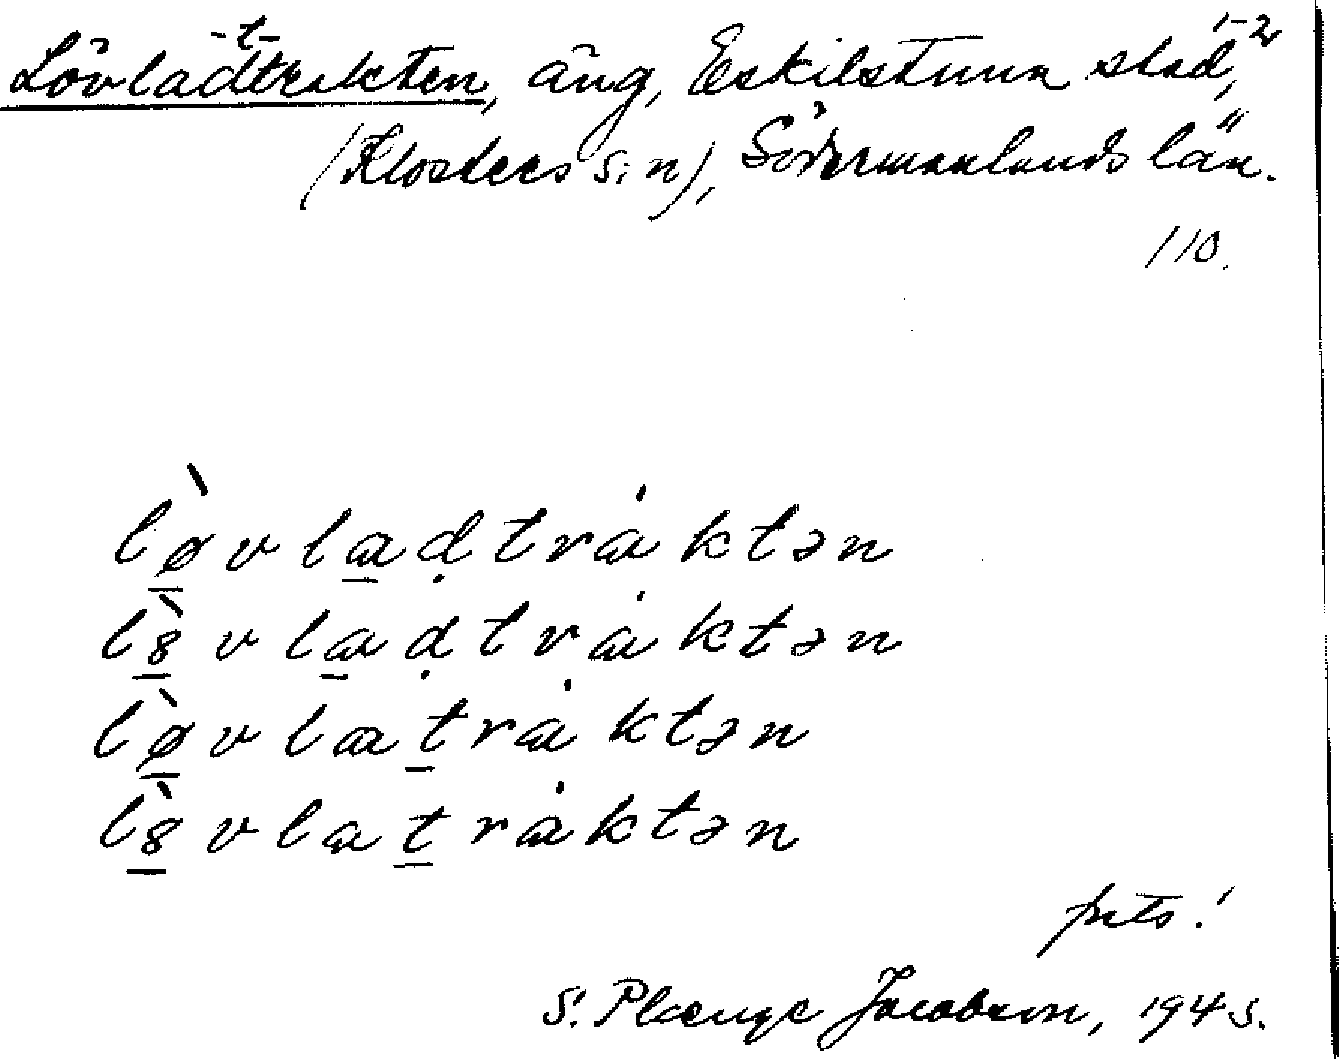 -t- 1-2
Lövladtrakten, äng, Eskilstuna stad,
(Klosters s:n), Södermanlands län.
110.
lø̀vladtráktən
lꞩ̀vladtráktən
lø̀vlatráktən
lꞩ̀vlatráktən
S. Plænge Jacobson, 1945.